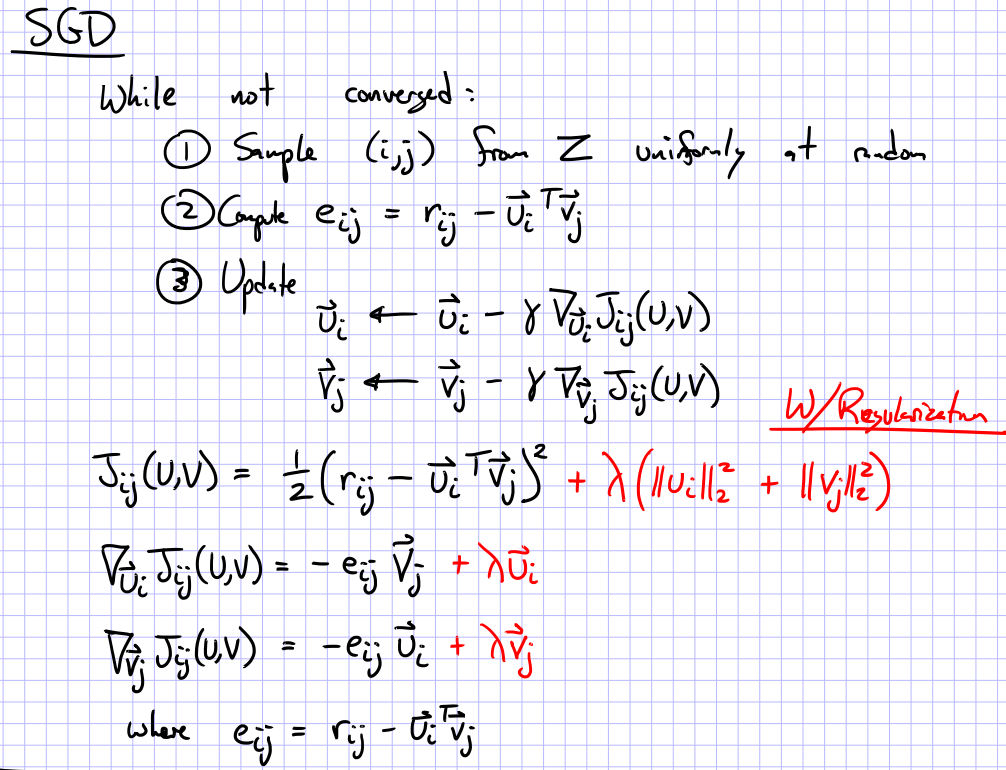 SGD
While not converged:
① Sample (i,j) from Z uniformly at random
② Compute e_ij = r_ij - u⃗_i^T v⃗_j
③ Update
u⃗_i ← u⃗_i - γ ∇_u⃗_i J_ij(U,V)
v⃗_j ← v⃗_j - γ ∇_v⃗_j J_ij(U,V)
W/Regularization
J_ij(U,V) = 1/2 (r_ij - u⃗_i^T v⃗_j)^2 + λ(||u_i||_2^2 + ||v_j||_2^2)
∇_u⃗_i J_ij(U,V) = - e_ij v⃗_j + λu⃗_i
∇_v⃗_j J_ij(U,V) = - e_ij u⃗_i + λv⃗_j
where e_ij = r_ij - u⃗_i^T v⃗_j